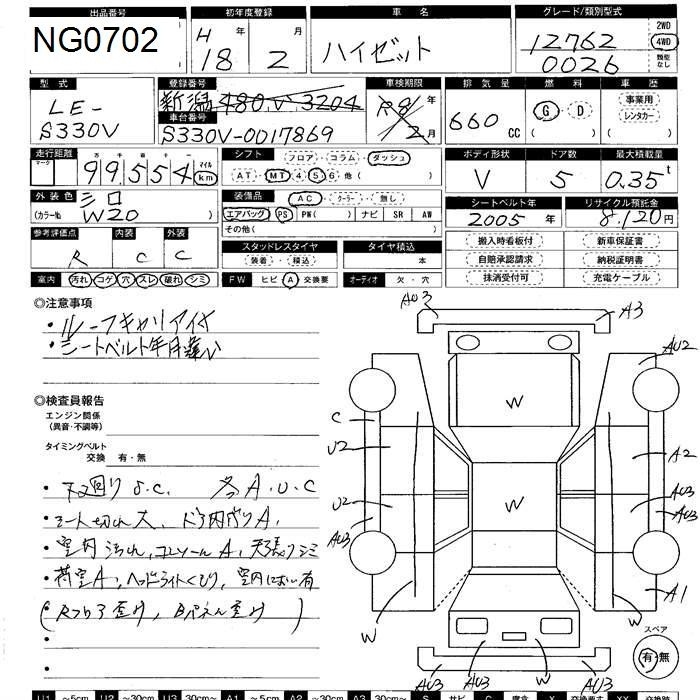 出品番号
初年度登録
車名
グレード/類別型式
NG0702
H 年 月
18 2
ハイゼット
12762
0026
2WD
4WD
類型なし
型式
LE-
S330V
登録番号
新潟 480 い 3204
車台番号
S330V-0017869
車検期限
R 年
2 月
排気量
660 CC
燃料
G D
( )
車歴
事業用
レンタカー
( )
走行距離
マーク 万 千 百 十 一
99554
マイル
km
シフト
フロア・コラム・ダッシュ
AT・MT 4 5 6 他( )
ボディ形状
V
ドア数
5
最大積載量
0.35t
外装色
シロ
(カラーNo. W20 )
装備品
AC・クーラー・無し
エアバッグ PS PW( ) ナビ SR AW
その他( )
シートベルト年
2005年
リサイクル預託金
8,120円
参考評価点 内装 外装
R C C
スタッドレスタイヤ
装着・積込
タイヤ積込
本
搬入時看板付
新車保証書
自賠承認請求
納税証明書
抹消受付可
充電ケーブル
室内 汚れ コゲ 穴 スレ 破れ シミ
FW ヒビ・A 交換要
オーディオ 欠・穴
◎注意事項
・ルーフキャリア付
・シートベルト年月違い
◎検査員報告
エンジン関係
(異音・不調等)
タイミングベルト
交換 有・無
・下回りS.C. 各A.U.C
・シート切れ大、ドア内張りA、
・室内汚れ、コンソールA、天張りシミ
・荷室A、ヘッドライトくもり、室内におい有
(Rフロア歪み、Bパネル歪み)
AU3
A3
AU2
AU2
C
U2
U2
AU3
W
W
W
W
W
A2
AU3
AU3
A1
AU3
AU3
AU3
スペア
有・無
U1 ~5cm U2 ~30cm U3 30cm~ A1 ~5cm A2 ~30cm A3 30cm~ S サビ C 腐食 X 交換要す XX 交換跡